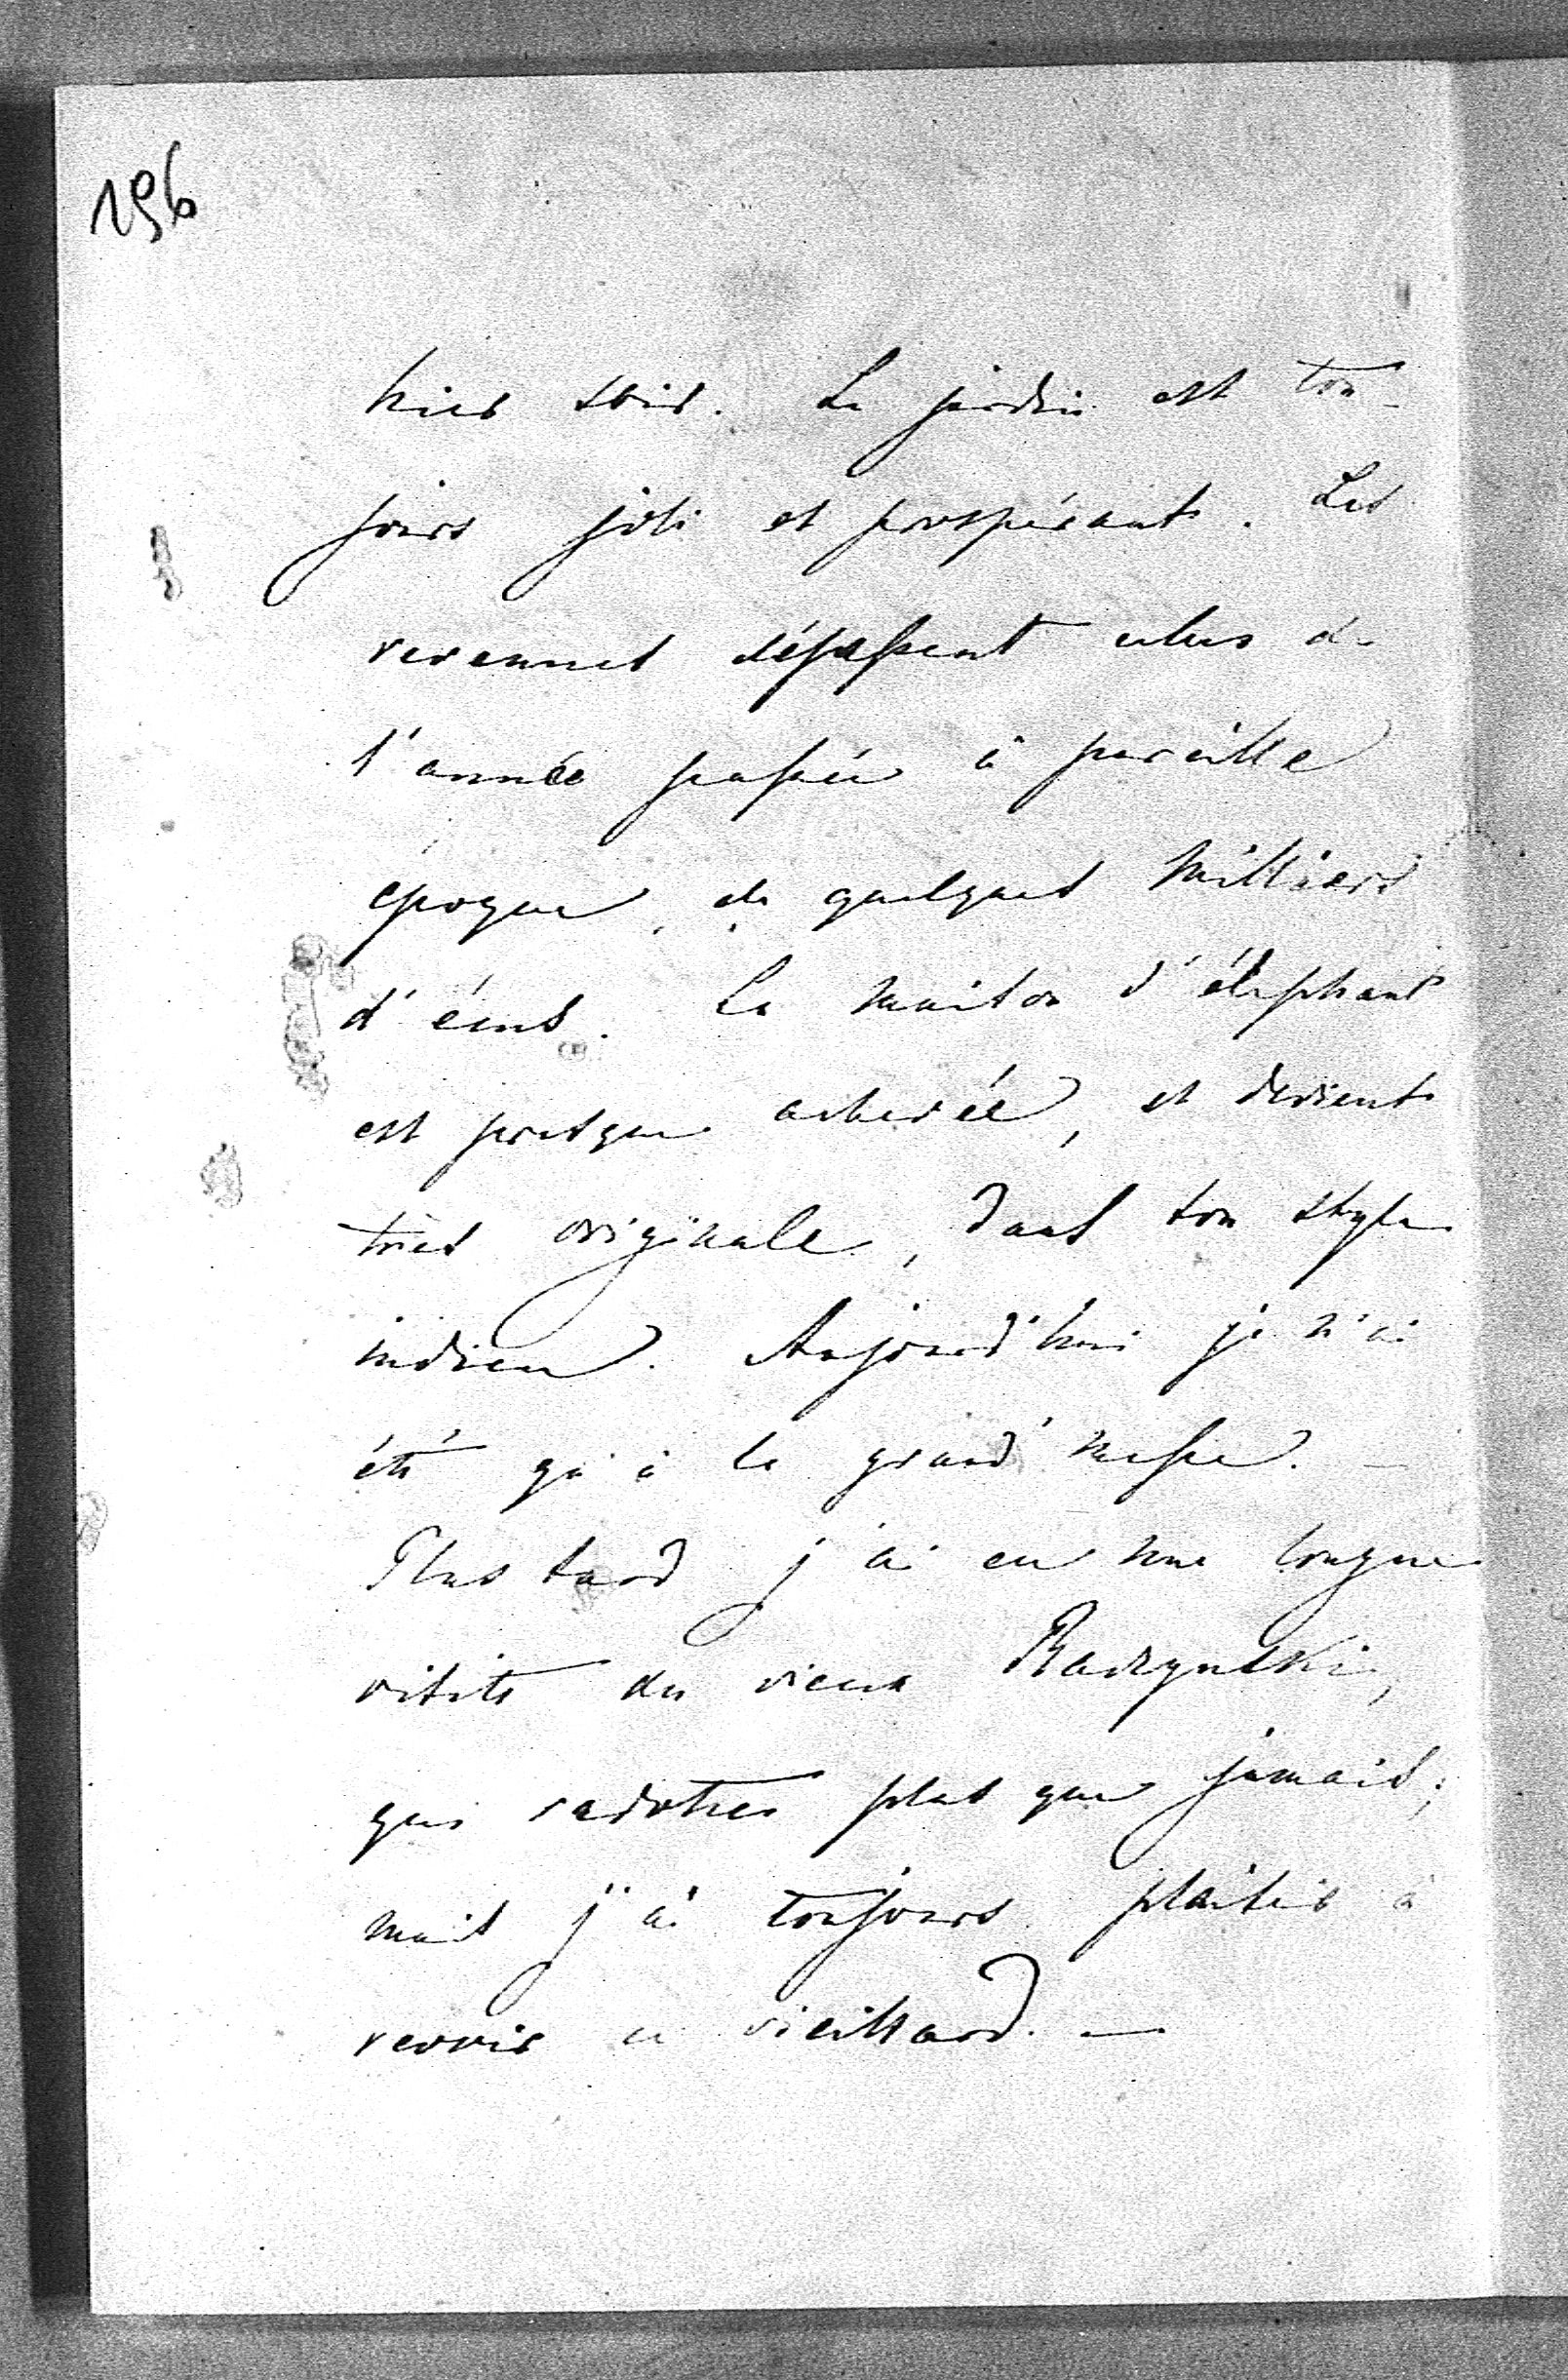 196
hier soir. Le jardin est tou-
jours joli et prospérant. Les
revenues dépassent celles de
l'année passée à pareille
époque, de quelques milliers
d'écus. La maison d'éléphant
est presque achevée, et devient
très originale, dans son style
indien. Aujourd'hui je n'ai
été qu'à la grand' messe. –
Plus tard j'ai eu une longue
visite du vieux Raczynski,
qui radotte plus que jamais;
mais j'ai toujours plaisir à
revoir ce vieillard. –